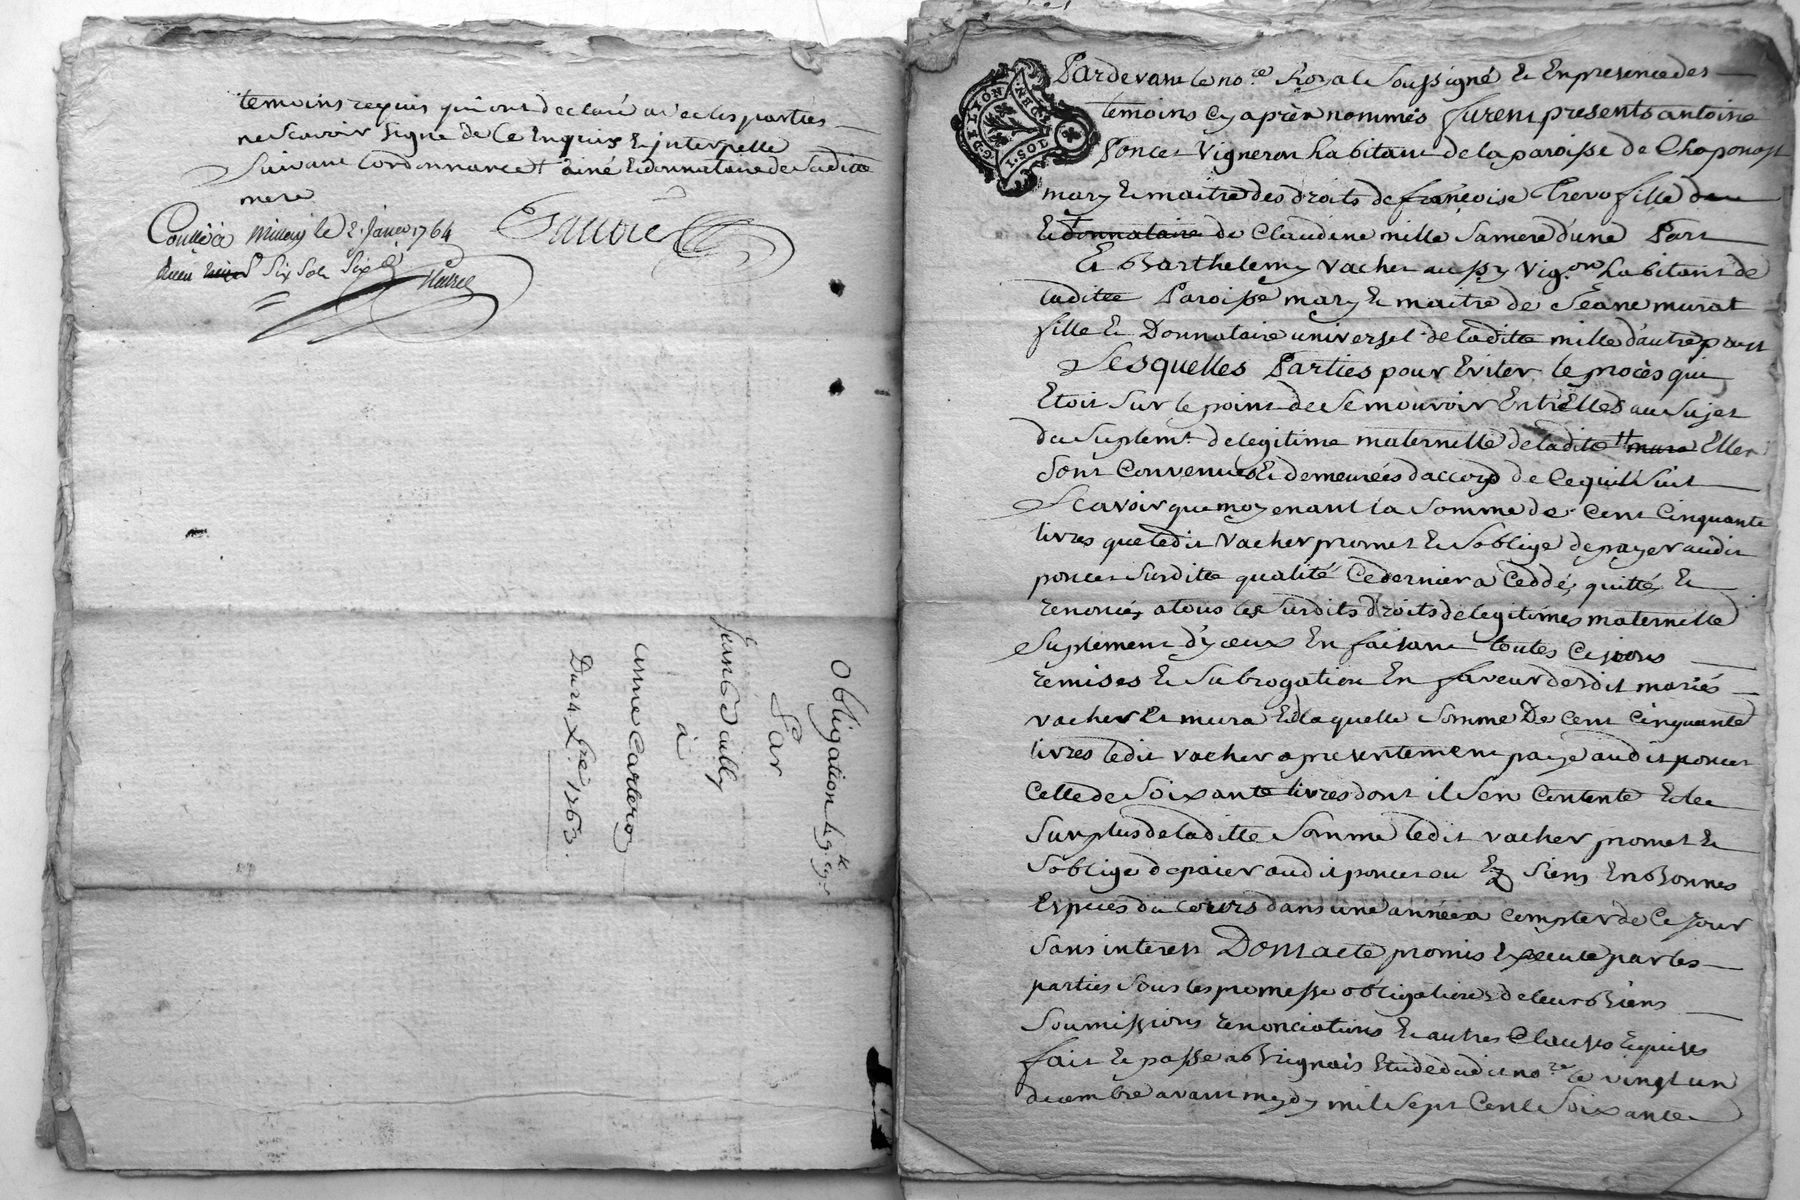 temoins requis qui ont declaré avec les parties
ne scavoir signe de ce enquis & interpelle
suivant lordonnance + ainé & donnataire de sa ditte
mere
Conllé à Millery le 2 Janer 1764
Six sols Six d
Obligation de
Par
Jean Dailly
à
anne
Du 24 xbre 1763.
G. DE LYON
1. SOL
Pardevant le nore Royal soussigné & en presence des
temoins cy après nommés furent presents antoine
Poncet vigneron habitant de la paroisse de Chaponost
mary & maitre des droits de françoise Trevo fille
& + donnataire de Claudine mille sa mere d'une Part
Et Barthelemy vacher aussy vigon habitant de
laditte Paroisse mary & maitre de Jeane murat
fille & Donnataire universel de laditte mille d'autre part
Lesquelles Parties pour Eviter le procès qui
Etoit sur le point de se mouvoir Entr'Elles au sujet
du suplemt de legitime maternelle de ladite Elles
sont Convenues & demeurées d'accord de ce quil suit
Scavoir que moyenant la somme de Cent Cinquante
livres que ledit vacher promet & s'oblige de payer audit
poncet susditte qualité Ce dernier a Ceddé, quitté, &
renoncés a tous les susdits droits de legitimes maternelle
suplement d'yceux En faisant toutes Cessions
remises & subrogation En faveur desdit mariés
vacher & mura & delaquelle somme De Cent Cinquante
livres ledit vacher a presentement payé audit poncet
Celle de soixante livres dont il s'en Contente & le
surplus de laditte somme ledit vacher promet &
s'oblige de paier audit poncet ou siens En Bonnes
Especes du Cours dans une année a Compter de Ce Jour
sans interest Dont acte promis Execute par les
parties sous les promesse obligations de leur biens
soumissions renonciations & autres Clauses requises
fait & passe a Brignais Etude dudit nore le vingt un
decembre avant mydy mil sept Cent soixante